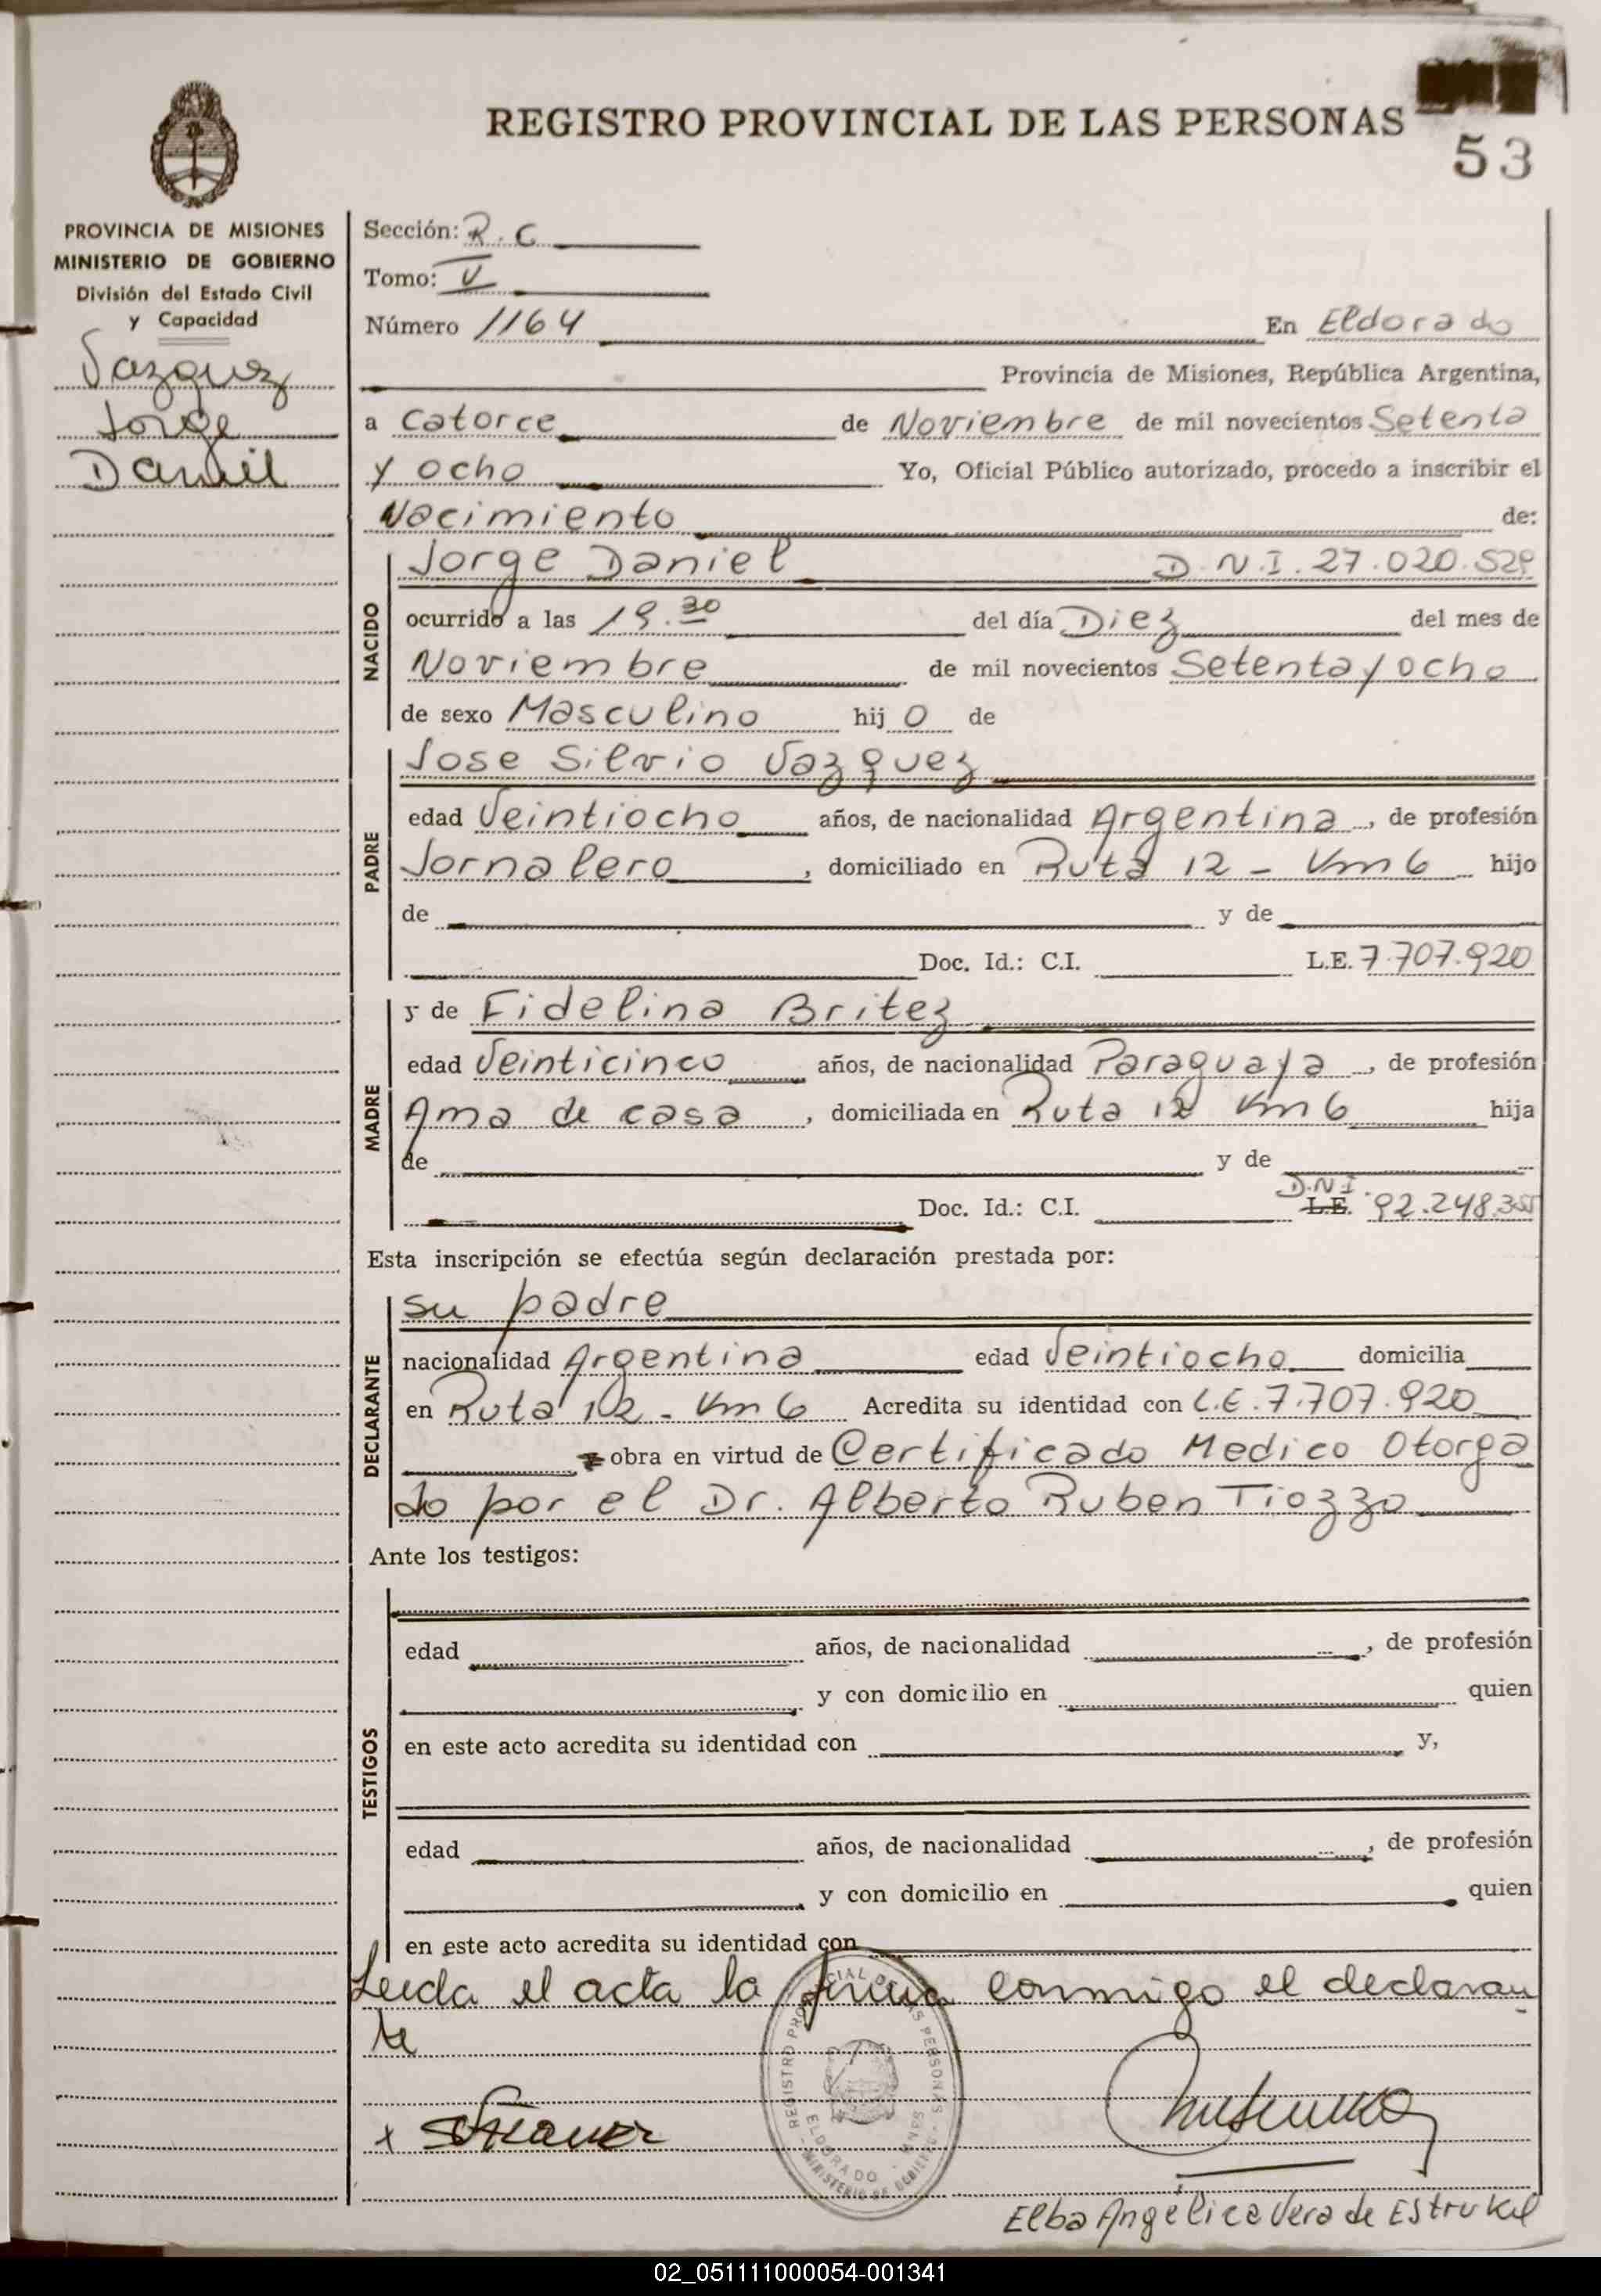 REGISTRO PROVINCIAL DE LAS PERSONAS
53
PROVINCIA DE MISIONES
MINISTERIO DE GOBIERNO
División del Estado Civil
y Capacidad
Vazquez
Jorge
Daniel
Sección: R. C
Tomo: V
Número 1164 En Eldorado
Provincia de Misiones, República Argentina,
a Catorce de Noviembre de mil novecientos Setenta
y ocho Yo, Oficial Público autorizado, procedo a inscribir el
Nacimiento de:
NACIDO
Jorge Daniel D.N.I. 27.020.529
ocurrido a las 19.30 del día Diez del mes de
Noviembre de mil novecientos Setenta y ocho
de sexo Masculino hijo de
PADRE
Jose Silvio Vazquez
edad Veintiocho años, de nacionalidad Argentina, de profesión
Jornalero, domiciliado en Ruta 12 - Km 6 hijo
de y de
Doc. Id.: C.I. L.E. 7.707.920
MADRE
y de Fidelina Britez
edad Veinticinco años, de nacionalidad Paraguaya, de profesión
Ama de casa, domiciliada en Ruta 12 Km 6 hija
de y de
Doc. Id.: C.I. L.E. D.N.I. 92.248.355
Esta inscripción se efectúa según declaración prestada por:
DECLARANTE
su padre
nacionalidad Argentina edad Veintiocho domicilia
en Ruta 12 - Km 6 Acredita su identidad con L.E. 7.707.920
obra en virtud de Certificado Medico Otorga
do por el Dr. Alberto Ruben Tiozzo
Ante los testigos:
TESTIGOS
edad años, de nacionalidad , de profesión
y con domicilio en quien
en este acto acredita su identidad con y,
edad años, de nacionalidad , de profesión
y con domicilio en quien
en este acto acredita su identidad con
Leida el acta la firma conmigo el declaran
te
REGISTRO PROVINCIAL DE LAS PERSONAS
ELDORADO - MNES
MINISTERIO DE GOBIERNO
x
Elba Angélica Vera de Estrukel
02_051111000054-001341